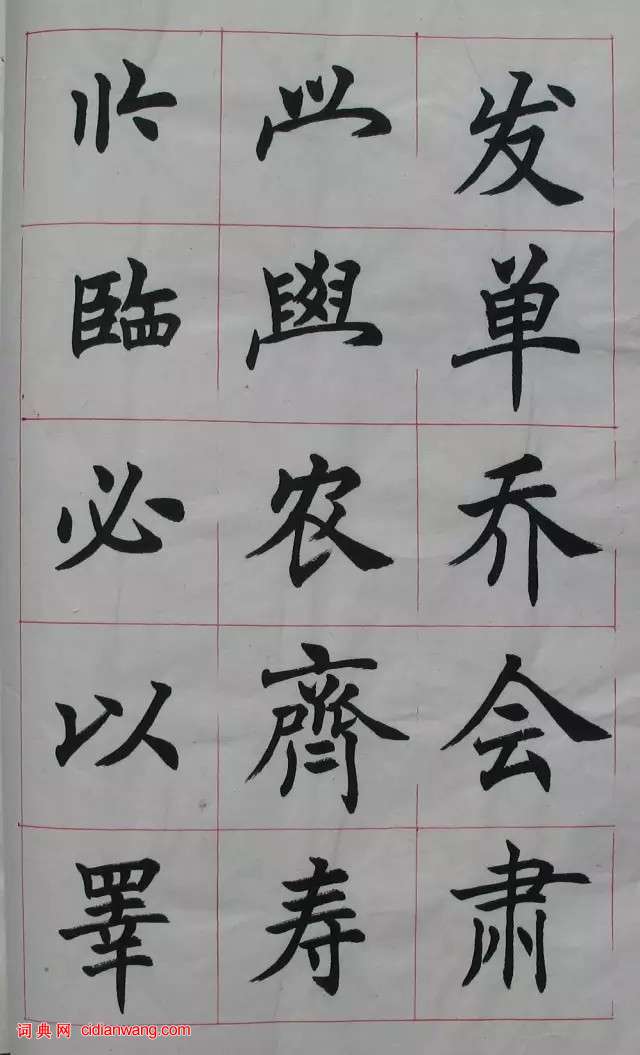 发单乔会肃
农齊寿
必以睪
词典网 cidianwang.com